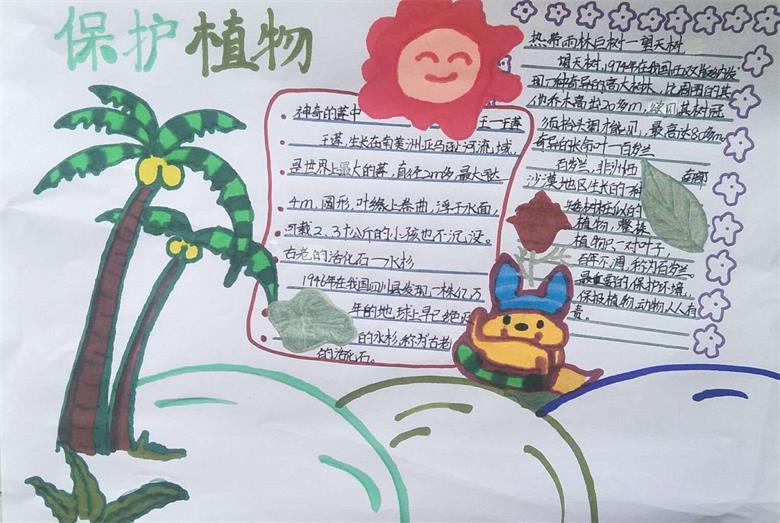 保护植物
神奇的莲中 王一王莲
王莲,生长在南美洲亚马逊河流域,
是世界上最大的莲,直径2m多,最大达
4m,圆形,叶缘上卷曲,浮于水面,
可载2、3十公斤的小孩也不沉没。
古老的活化石一水杉
1946年在我国四川县发现一株亿万
年的地球上早已绝
的水杉,称为古老
的活化石。
热带雨林巨树一望天树
望天树,1974年在我国西双版纳发
现一种奇异的高大树木,比周围的其
他乔木高出20多m,欲见其树冠
须抬头望才能见,最高达80多m。
奇异的长命叶一百岁兰
百岁兰,非洲西 南部
沙漠地区生长的一种
矮树桩似的
植物,整株
植物只一对叶子,
百年不凋,称为百岁兰。
最重要的保护环境,
保护植物,动物人人有
责。